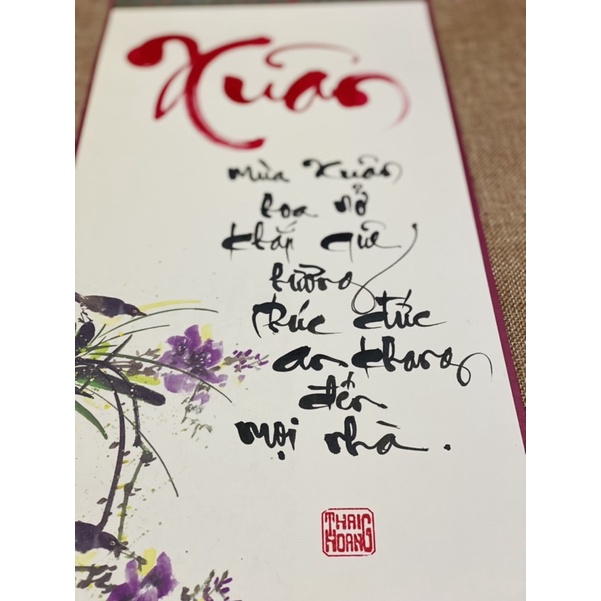 Xuân
Mùa Xuân
hoa nở
khắp quê
hương
phúc đức
an khang
đến
mọi nhà.
THAIG
HOANG